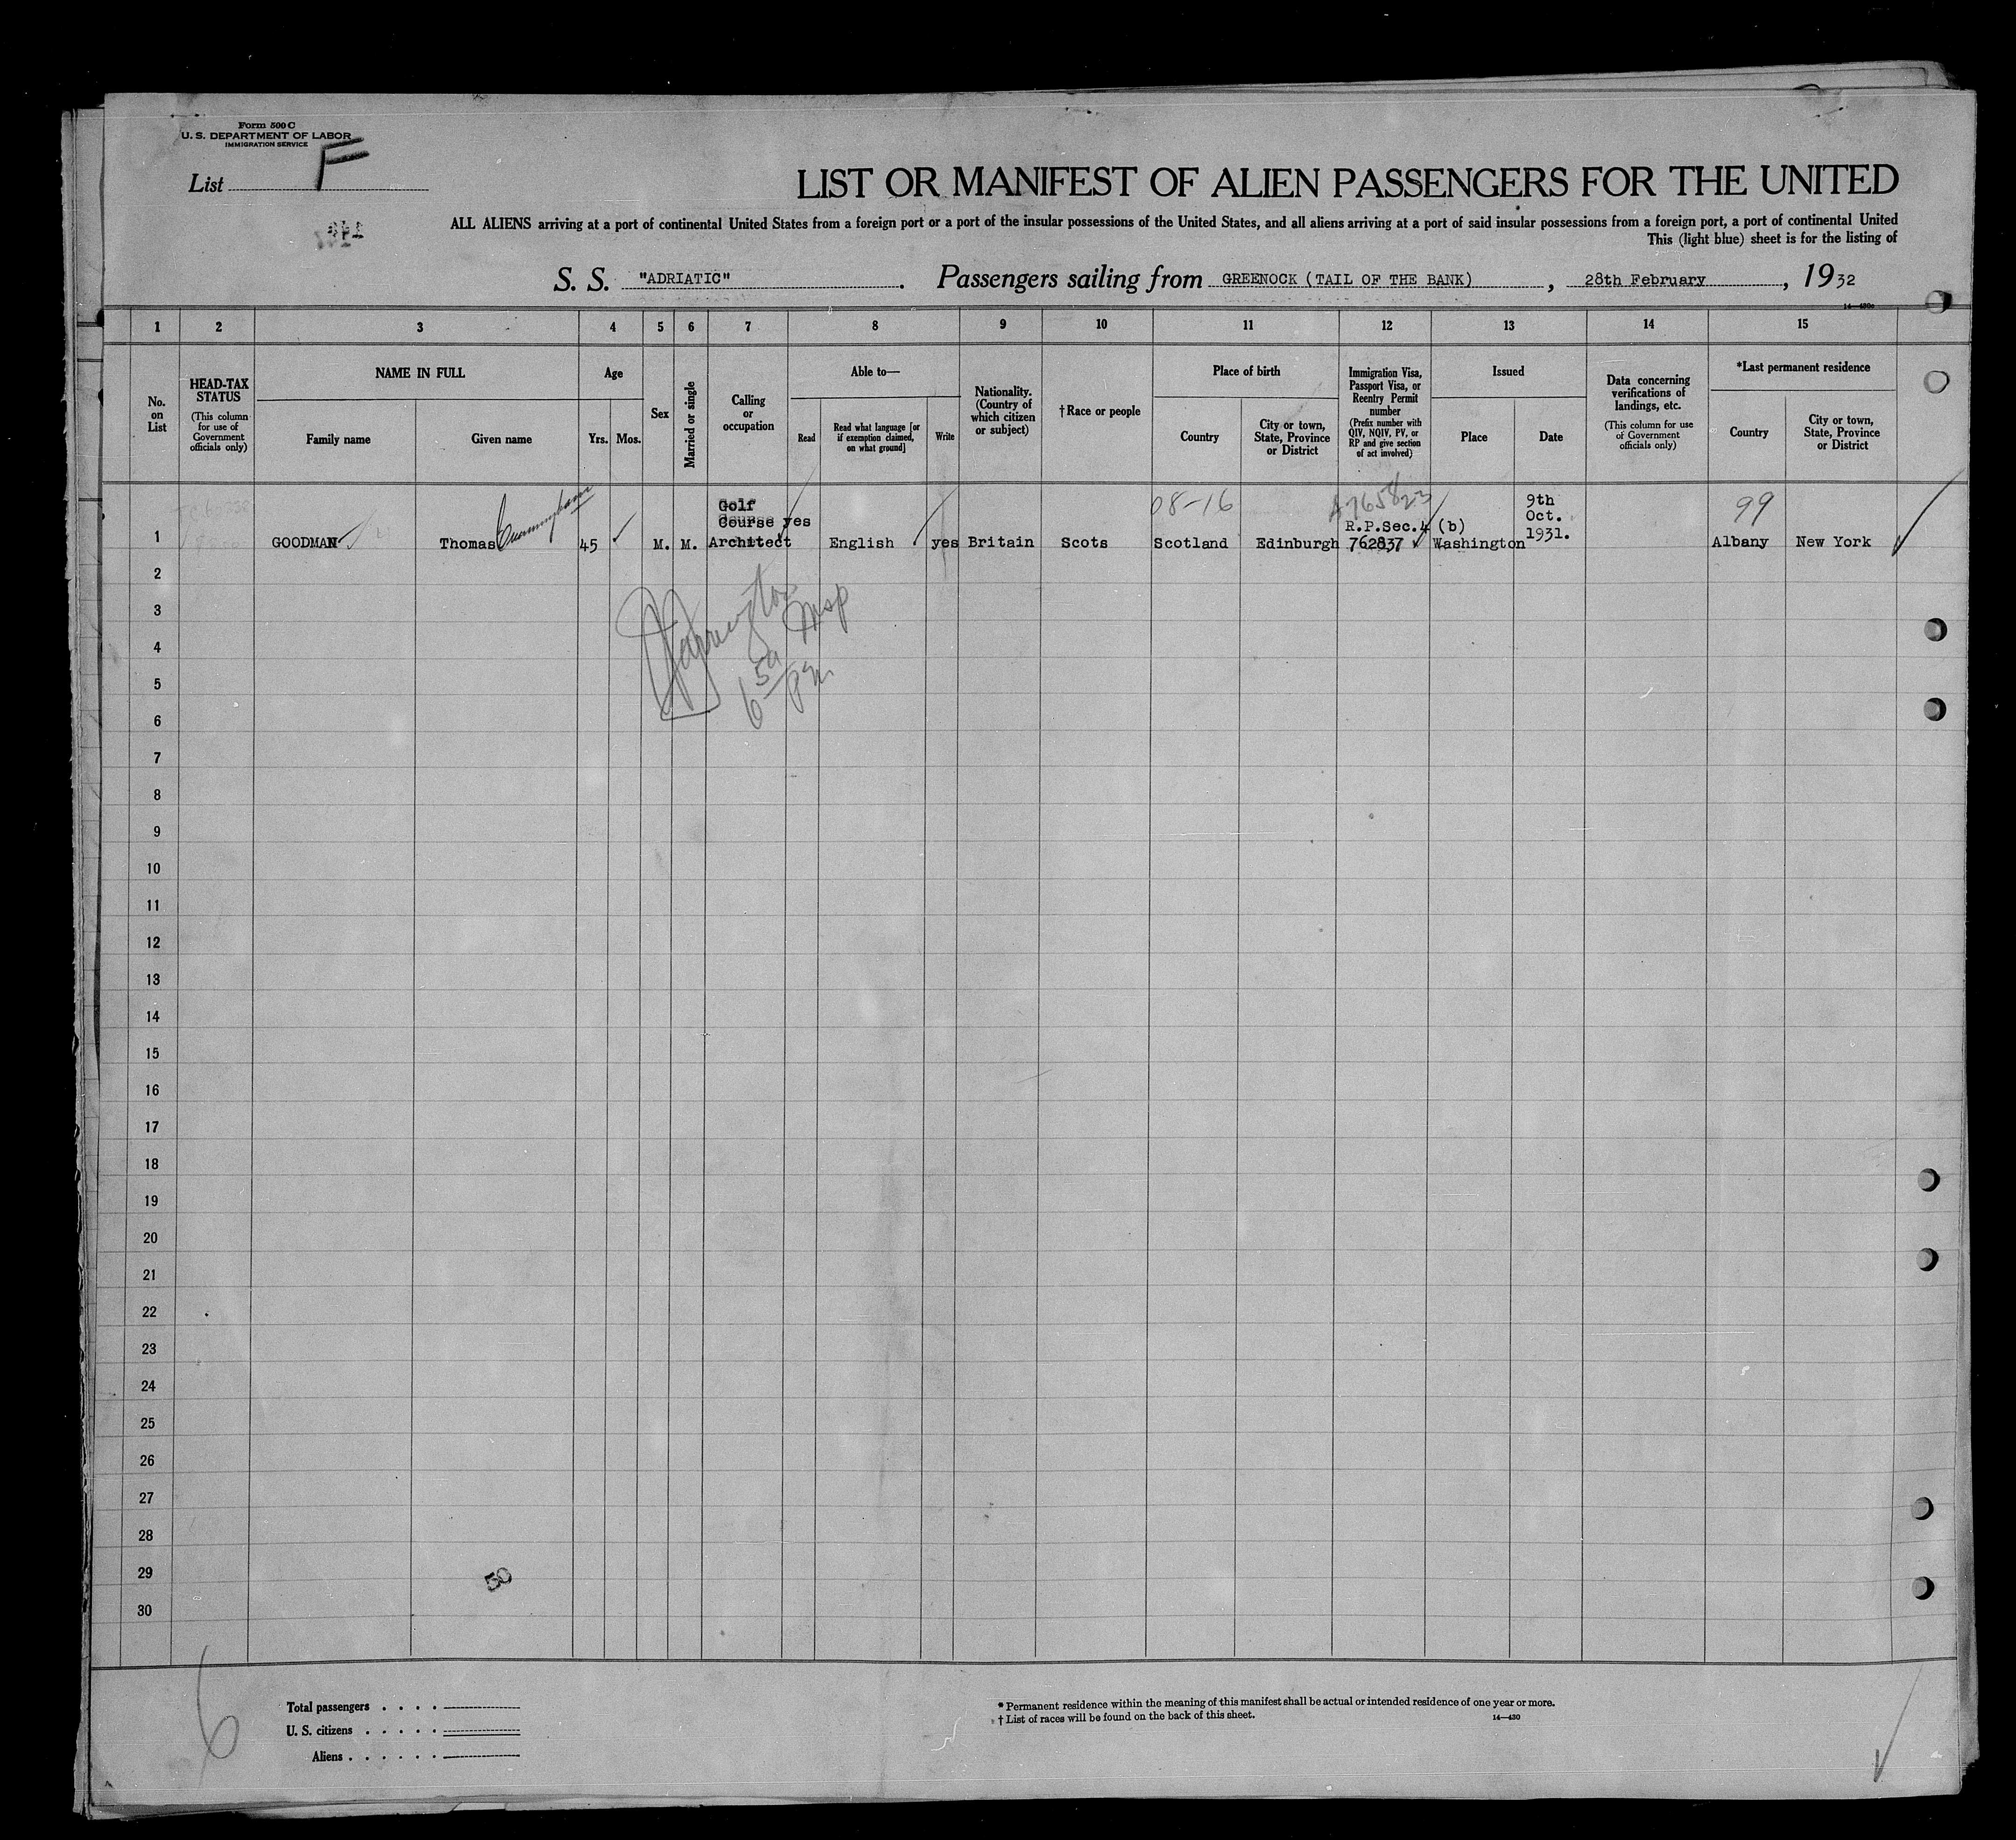 Form 500 C
U. S. DEPARTMENT OF LABOR
IMMIGRATION SERVICE
List F
LIST OR MANIFEST OF ALIEN PASSENGERS FOR THE UNITED
ALL ALIENS arriving at a port of continental United States from a foreign port or a port of the insular possessions of the United States, and all aliens arriving at a port of said insular possessions from a foreign port, a port of continental United
This (light blue) sheet is for the listing of
S. S. "ADRIATIC". Passengers sailing from GREENOCK (TAIL OF THE BANK), 28th February, 1932
14—430c
1 2 3 4 5 6 7 8 9 10 11 12 13 14 15
No. on List
HEAD-TAX STATUS
(This column for use of Government officials only)
NAME IN FULL
Family name
Given name
Age
Yrs.
Mos.
Sex
Married or single
Calling or occupation
Able to—
Read
Read what language [or if exemption claimed, on what ground]
Write
Nationality. (Country of which citizen or subject)
†Race or people
Place of birth
Country
City or town, State, Province or District
Immigration Visa, Passport Visa, or Reentry Permit number
(Prefix number with QIV, NQIV, PV, or RP and give section of act involved)
Issued
Place
Date
Data concerning verifications of landings, etc.
(This column for use of Government officials only)
*Last permanent residence
Country
City or town, State, Province or District
1 GOODMAN Thomas Cunningham 45 M. M. Golf Course Architect yes English yes Britain Scots 08-16 Scotland Edinburgh A765823 R.P.Sec.4 (b) 762837 Washington 9th Oct. 1931. 99 Albany New York
2
3
4
5
6
7
8
9
10
11
12
13
14
15
16
17
18
19
20
21
22
23
24
25
26
27
28
29
30
Insp
6 50 pm
50
6
Total passengers . . . .
U. S. citizens . . . . .
Aliens . . . . . .
* Permanent residence within the meaning of this manifest shall be actual or intended residence of one year or more.
† List of races will be found on the back of this sheet.
14—430